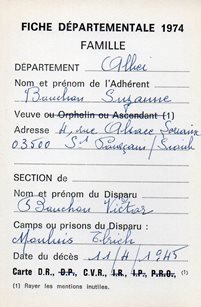 FICHE DÉPARTEMENTALE 1974
FAMILLE
DÉPARTEMENT Allier
Nom et prénom de l'Adhérent
Bauchon Suzanne
Veuve ou Orphelin ou Ascendant (1)
Adresse 4, rue Alsace Lorraine
03500 St Pourçain/Sioule
SECTION de
Nom et prénom du Disparu
Bauchon Victor
Camps ou prisons du Disparu :
Moulins
Date du décès 11/4/1945
Carte D.R., D.P., C.V.R., I.R., I.P., P.R.O., (1)
(1) Rayer les mentions inutiles.